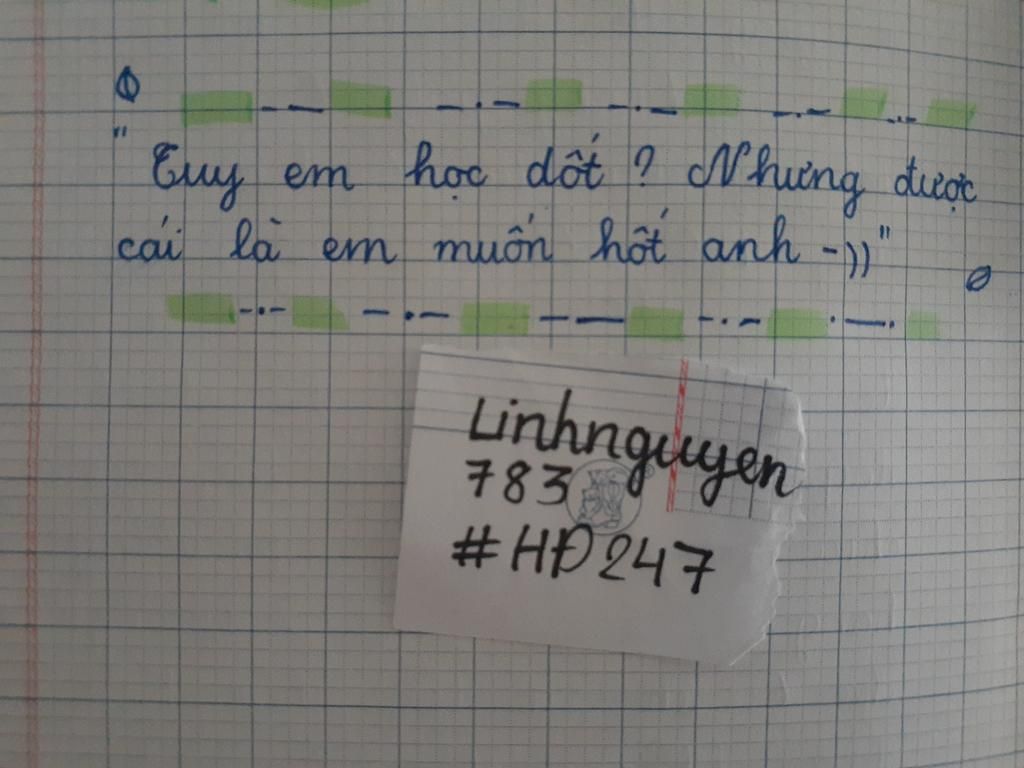 "Tuy em học dốt? Nhưng được
cái là em muốn hốt anh -))"
Linhnguyen
783
#HĐ247